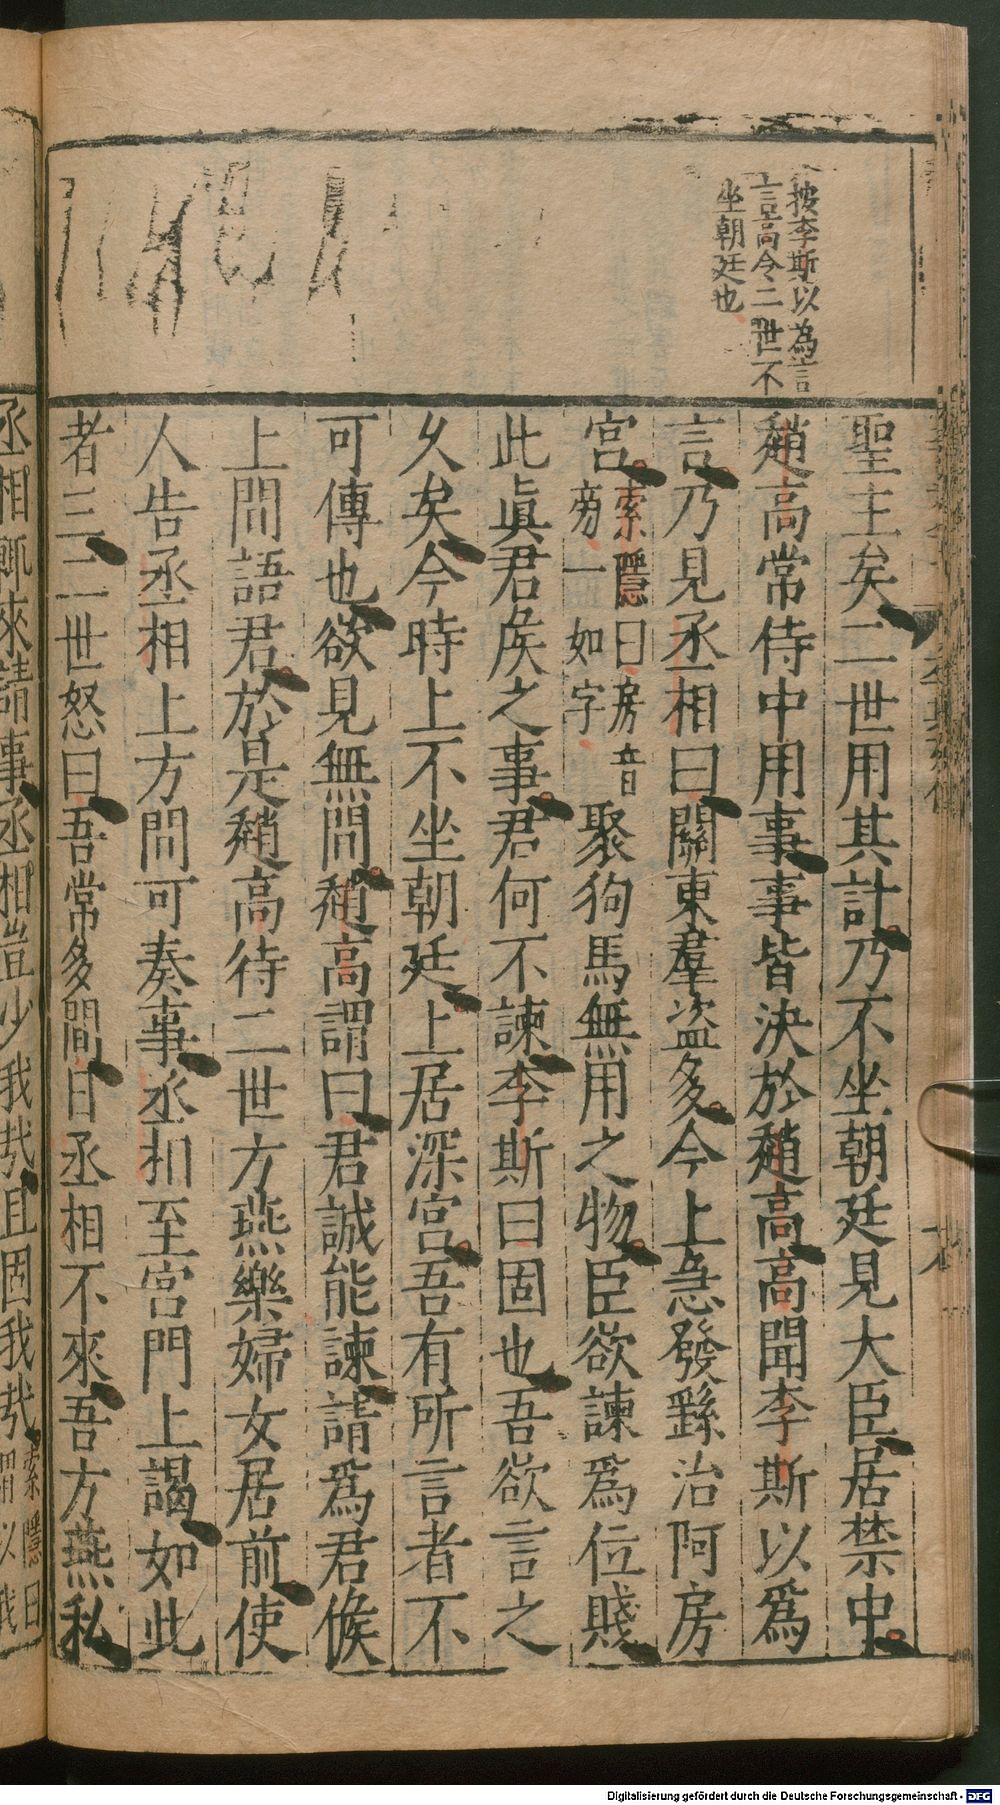 按李斯以為言
言高令二世不
坐朝廷也
聖主矣二世用其計乃不坐朝廷見大臣居禁中
趙高常侍中用事事皆決於趙高高聞李斯以爲
言乃見丞相曰關東羣盗多今上急發繇治阿房
宮索隱曰房音
旁一如字
聚狗馬無用之物臣欲諫爲位賤
此眞君侯之事君何不諫李斯曰固也吾欲言之
久矣今時上不坐朝廷上居深宮吾有所言者不
可傳也欲見無閒趙高謂曰君誠能諫請爲君候
上閒語君於是趙高待二世方燕樂婦女居前使
人告丞相上方閒可奏事丞相至宮門上謁如此
者三二世怒曰吾常多閒日丞相不來吾方燕私
丞相輒來請事丞相豈少我哉且固我哉索隱曰
謂以我
Digitalisierung gefördert durch die Deutsche Forschungsgemeinschaft - DFG